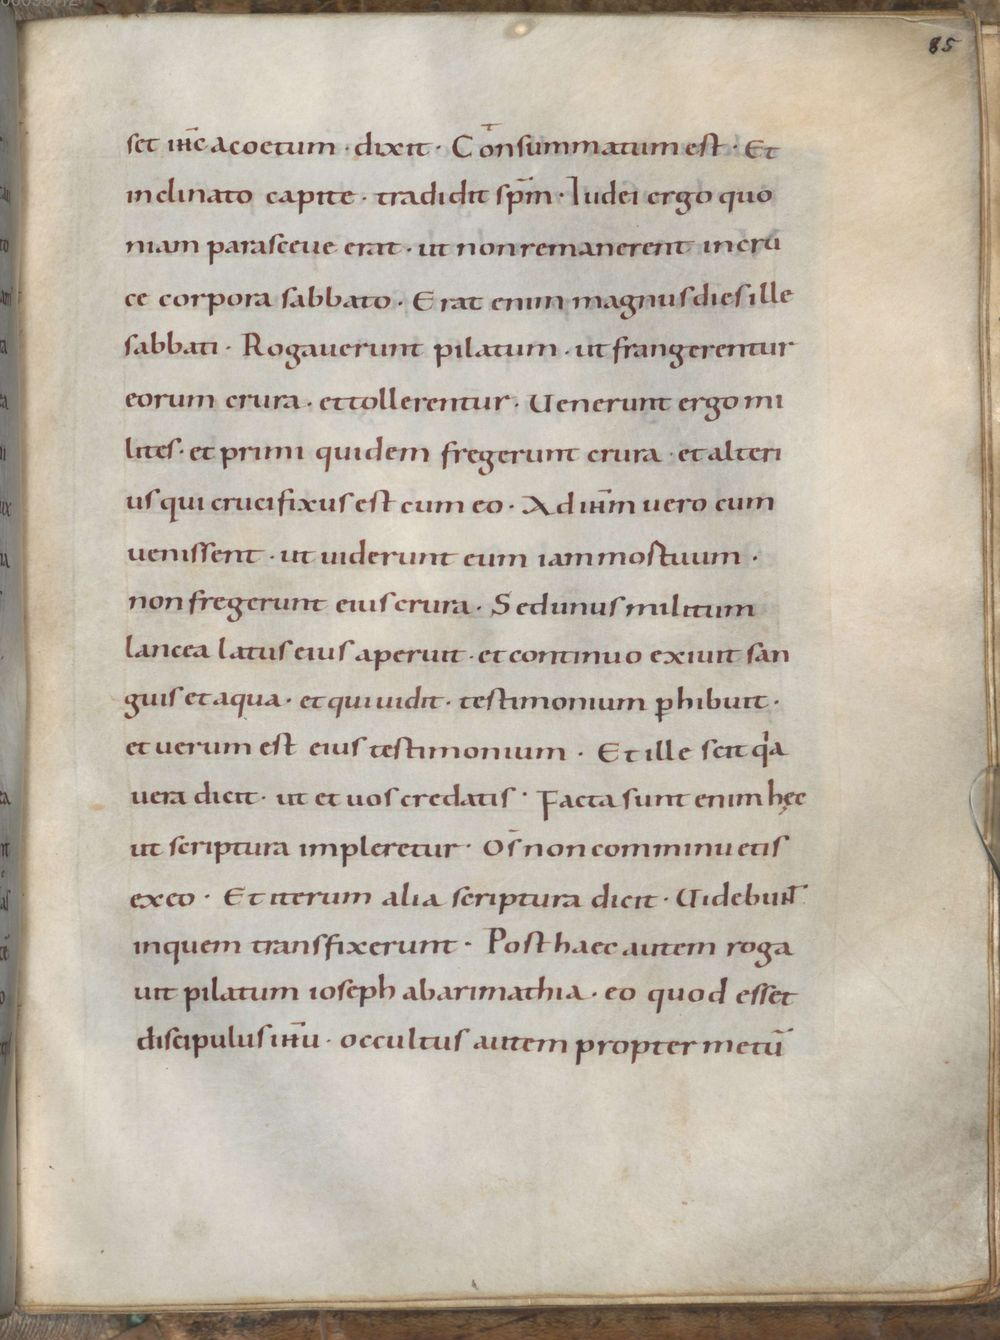 85
set ih̄c acoetum · dixit · Consummatum est · Et
inclinato capite · tradidit sp̄m · Iudei ergo quo
niam parasceue erat · ut non remanerent in cru
ce corpora sabbato · Erat enim magnus dies ille
sabbati · Rogauerunt pilatum · ut frangerentur
eorum crura · et tollerentur · Uenerunt ergo mi
lites · et primi quidem fregerunt crura · et alteri
us qui crucifixus est cum eo · Ad ih̄m uero cum
uenissent · ut uiderunt eum iam mostuum ·
non fregerunt eius crura · Sed unus militum
lancea latus eius aperuit · et continuo exiuit san
guis et aqua · et qui uidit · testimonium ꝑhibuit ·
et uerum est eius testimonium · Et ille scit qͥa
uera dicit · ut et uos credatis · Facta sunt enim hęc
ut scriptura impleretur · Os̄ non comminuetis
ex eo · Et iterum alia scriptura dicit · Uidebun̄t
in quem transfixerunt · Post haec autem roga
uit pilatum ioseph ab arimathia · eo quod esset
discipulus ih̄u · occultus autem propter metū